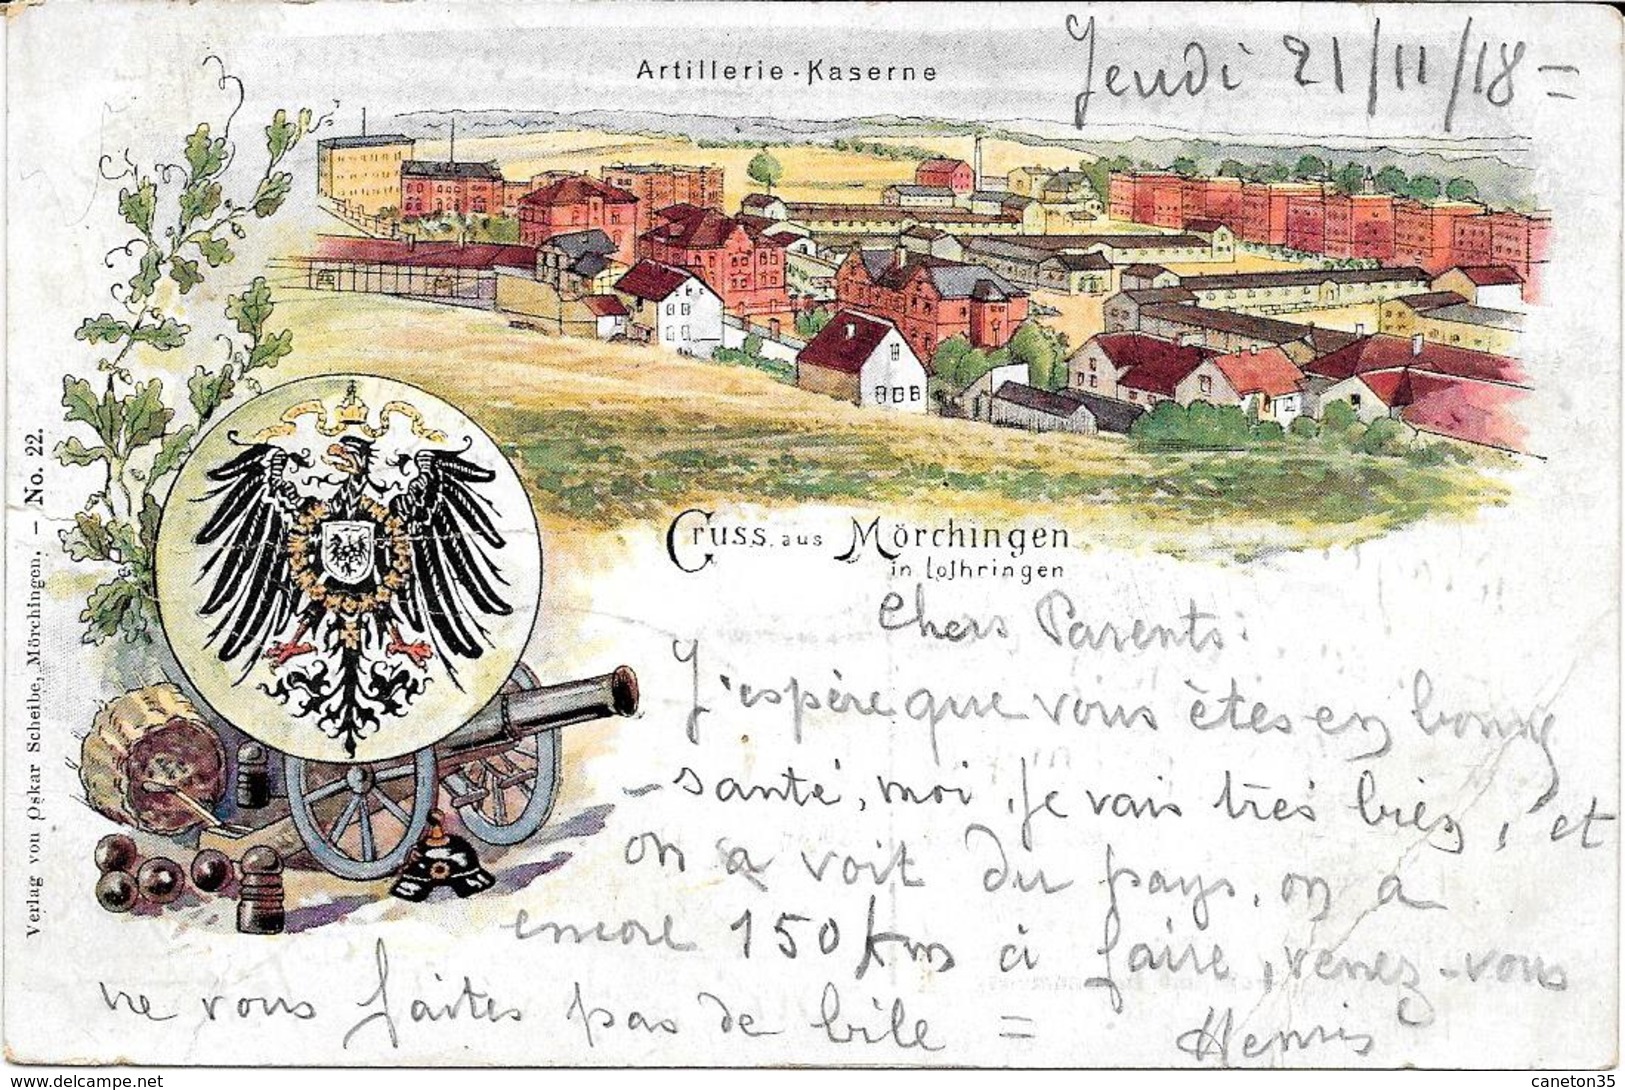 Artillerie-Kaserne
Jeudi 21/11/18 =
Gruss aus Mörchingen
in Lothringen
Chers Parents:
J'espère que vous êtes en bonne
- santé, moi, je vais très bien, et
on a voit du pays, on a
encore 150 kms à faire, venez-vous
ne vous faites pas de bile =
Henris
Verlag von Oskar Scheibe, Mörchingen. – No. 22.
delcampe.net
caneton35